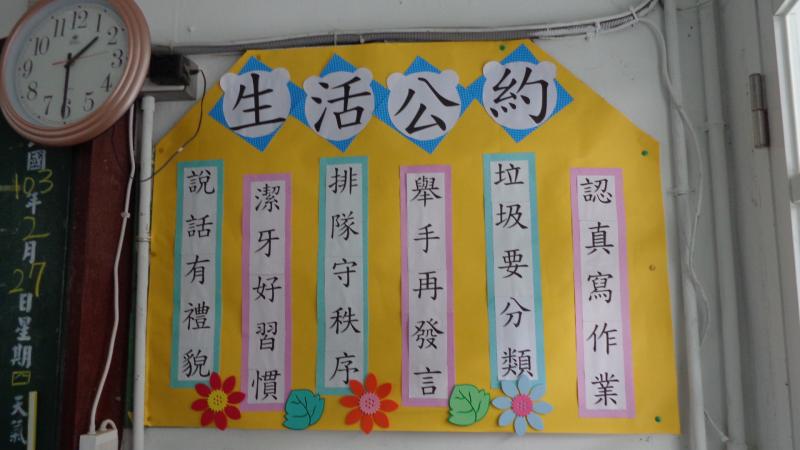 生活公約
認真寫作業
垃圾要分類
舉手再發言
排隊守秩序
潔牙好習慣
說話有禮貌
國103年2月27日星期四天氣
12
1
2
3
4
5
6
7
8
9
10
11